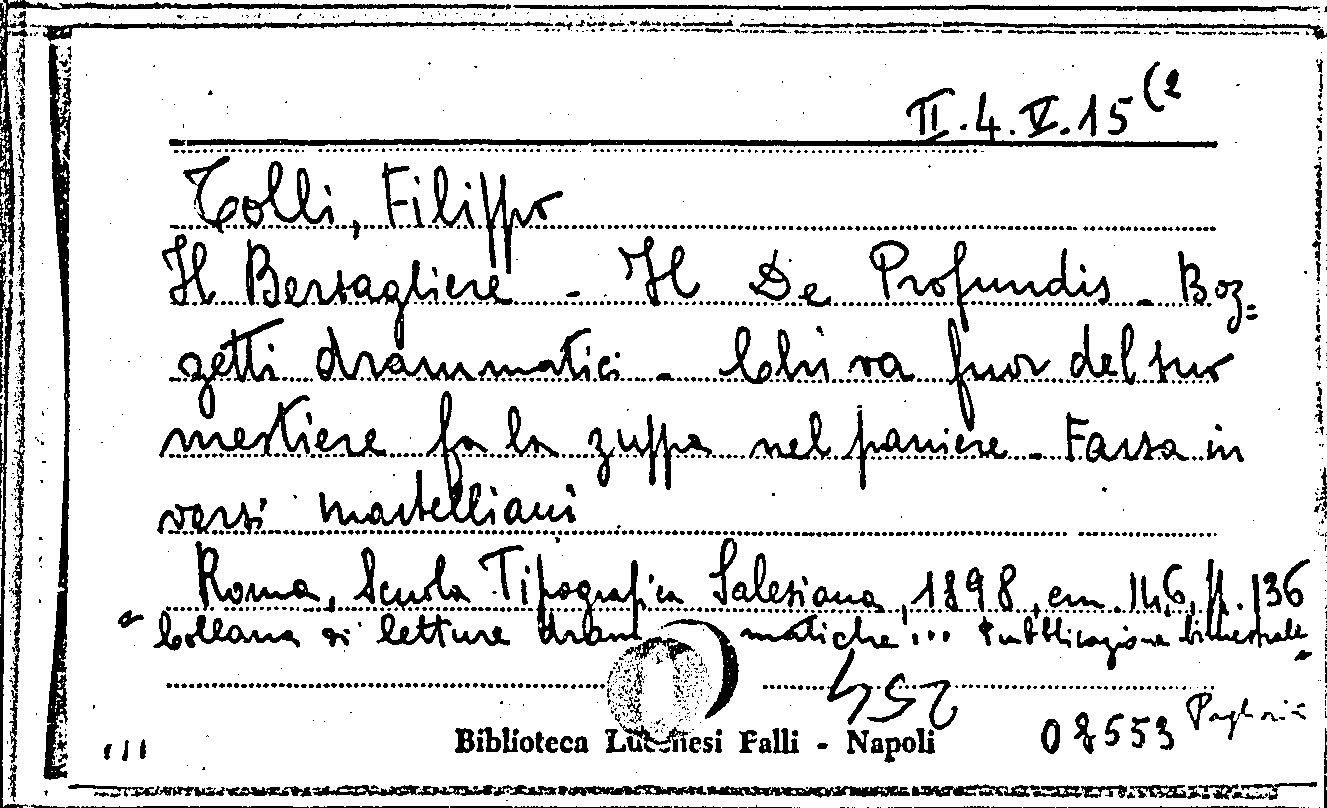 II.4.V.15(2
Tolli, Filippo
Il Bersagliere - Il De Profundis - Boz=
zetti drammatici - Chi va fuor del suo
mestiere fa la zuppa nel paniere - Farsa in
versi martelliani
Roma, Scuola Tipografica Salesiana, 1898, cm. 14,6, pp. 136
"Collana di letture drammatiche"... Pubblicazione bimestrale"
254
08553
Biblioteca Lucchesi Palli - Napoli